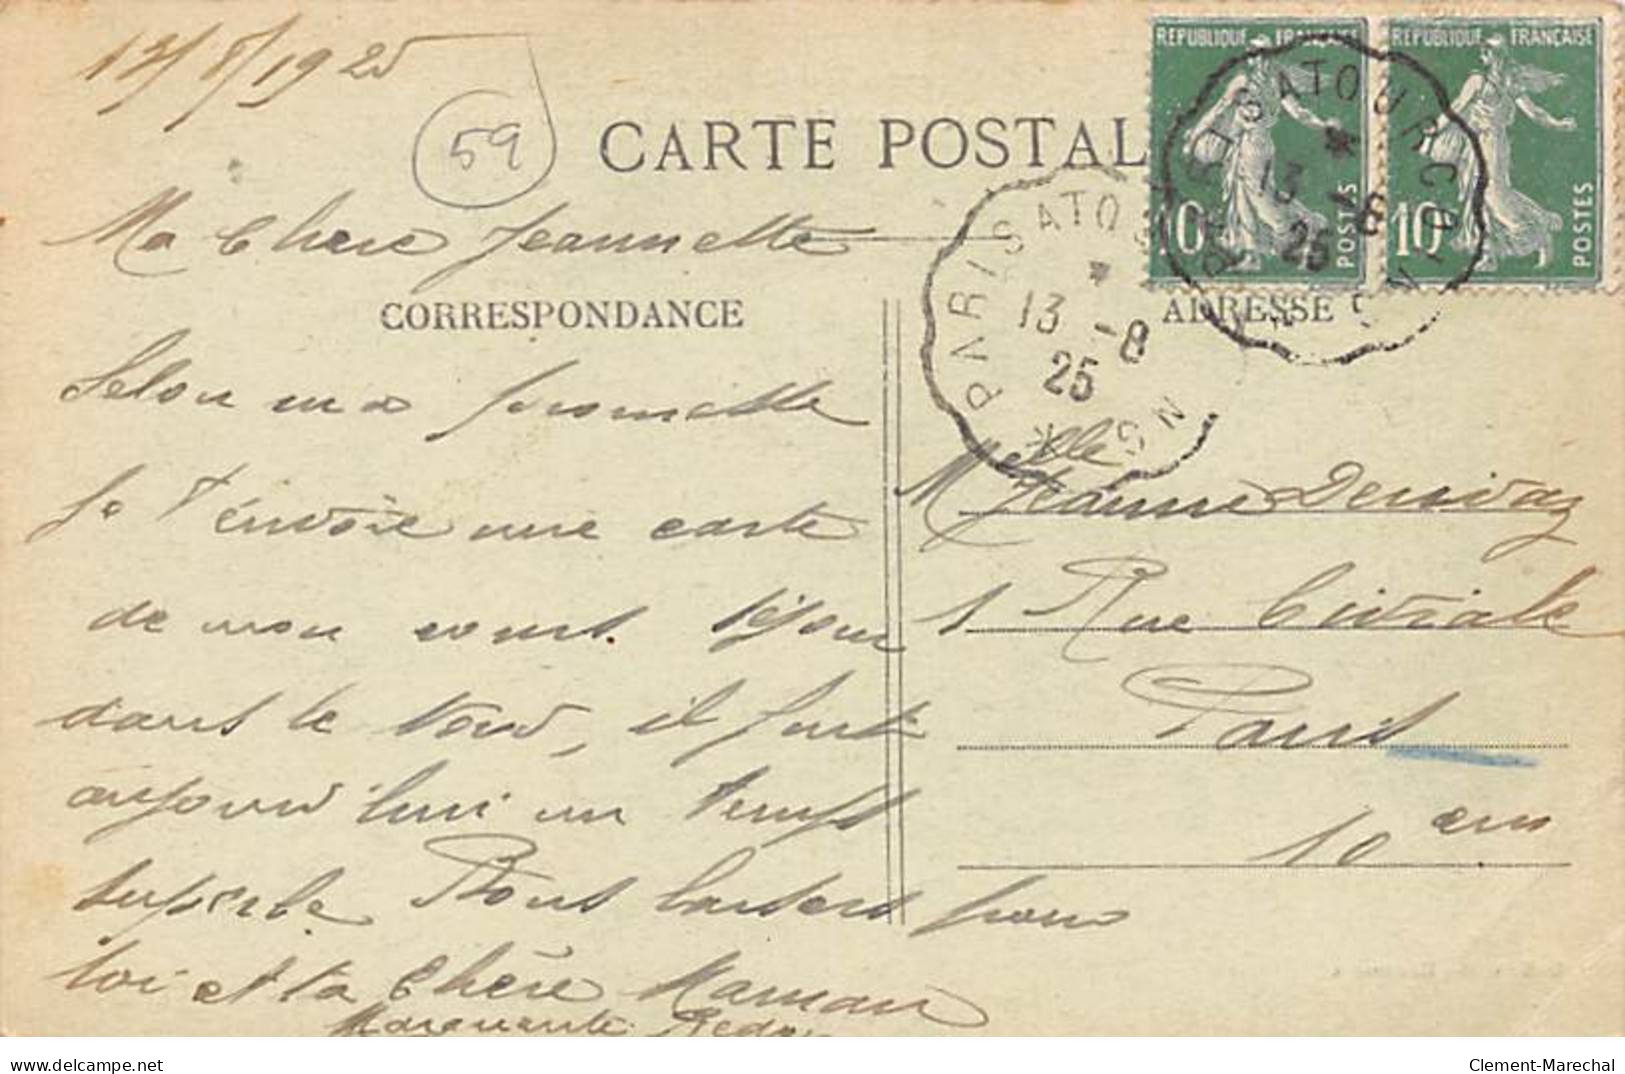 12/8/1925
59
CARTE POSTAL
REPUBLIQUE FRANÇAISE
10 POSTES
REPUBLIQUE FRANÇAISE
10 POSTES
PARIS A TOURCOING
13 -8
25
PARIS A TO
13 -8
25
NS
Ma Chère Jeannette
CORRESPONDANCE
ADRESSE
Selon ma promesse
Je t'envoie une carte
de mon court séjour
dans le Nord, il fait
aujourd'hui un temps
superbe Bons baisers pour
toi et ta Chère Maman
Marguerite
Mlle Jeanne
1 Rue Civiale
Paris
10 em
See delcampe.net
Clement-Marechal